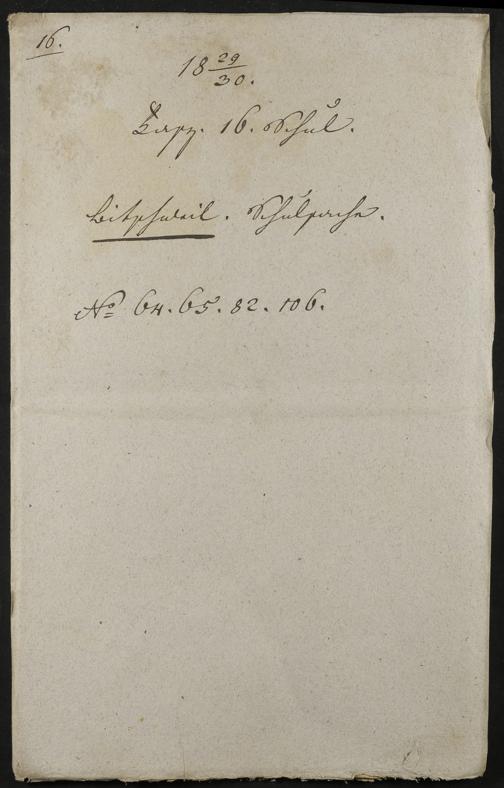 16.
18 29/30.
Kapp. 16. Schul.
Bitschweil. Schulsache.
No 64. 65. 82. 106.